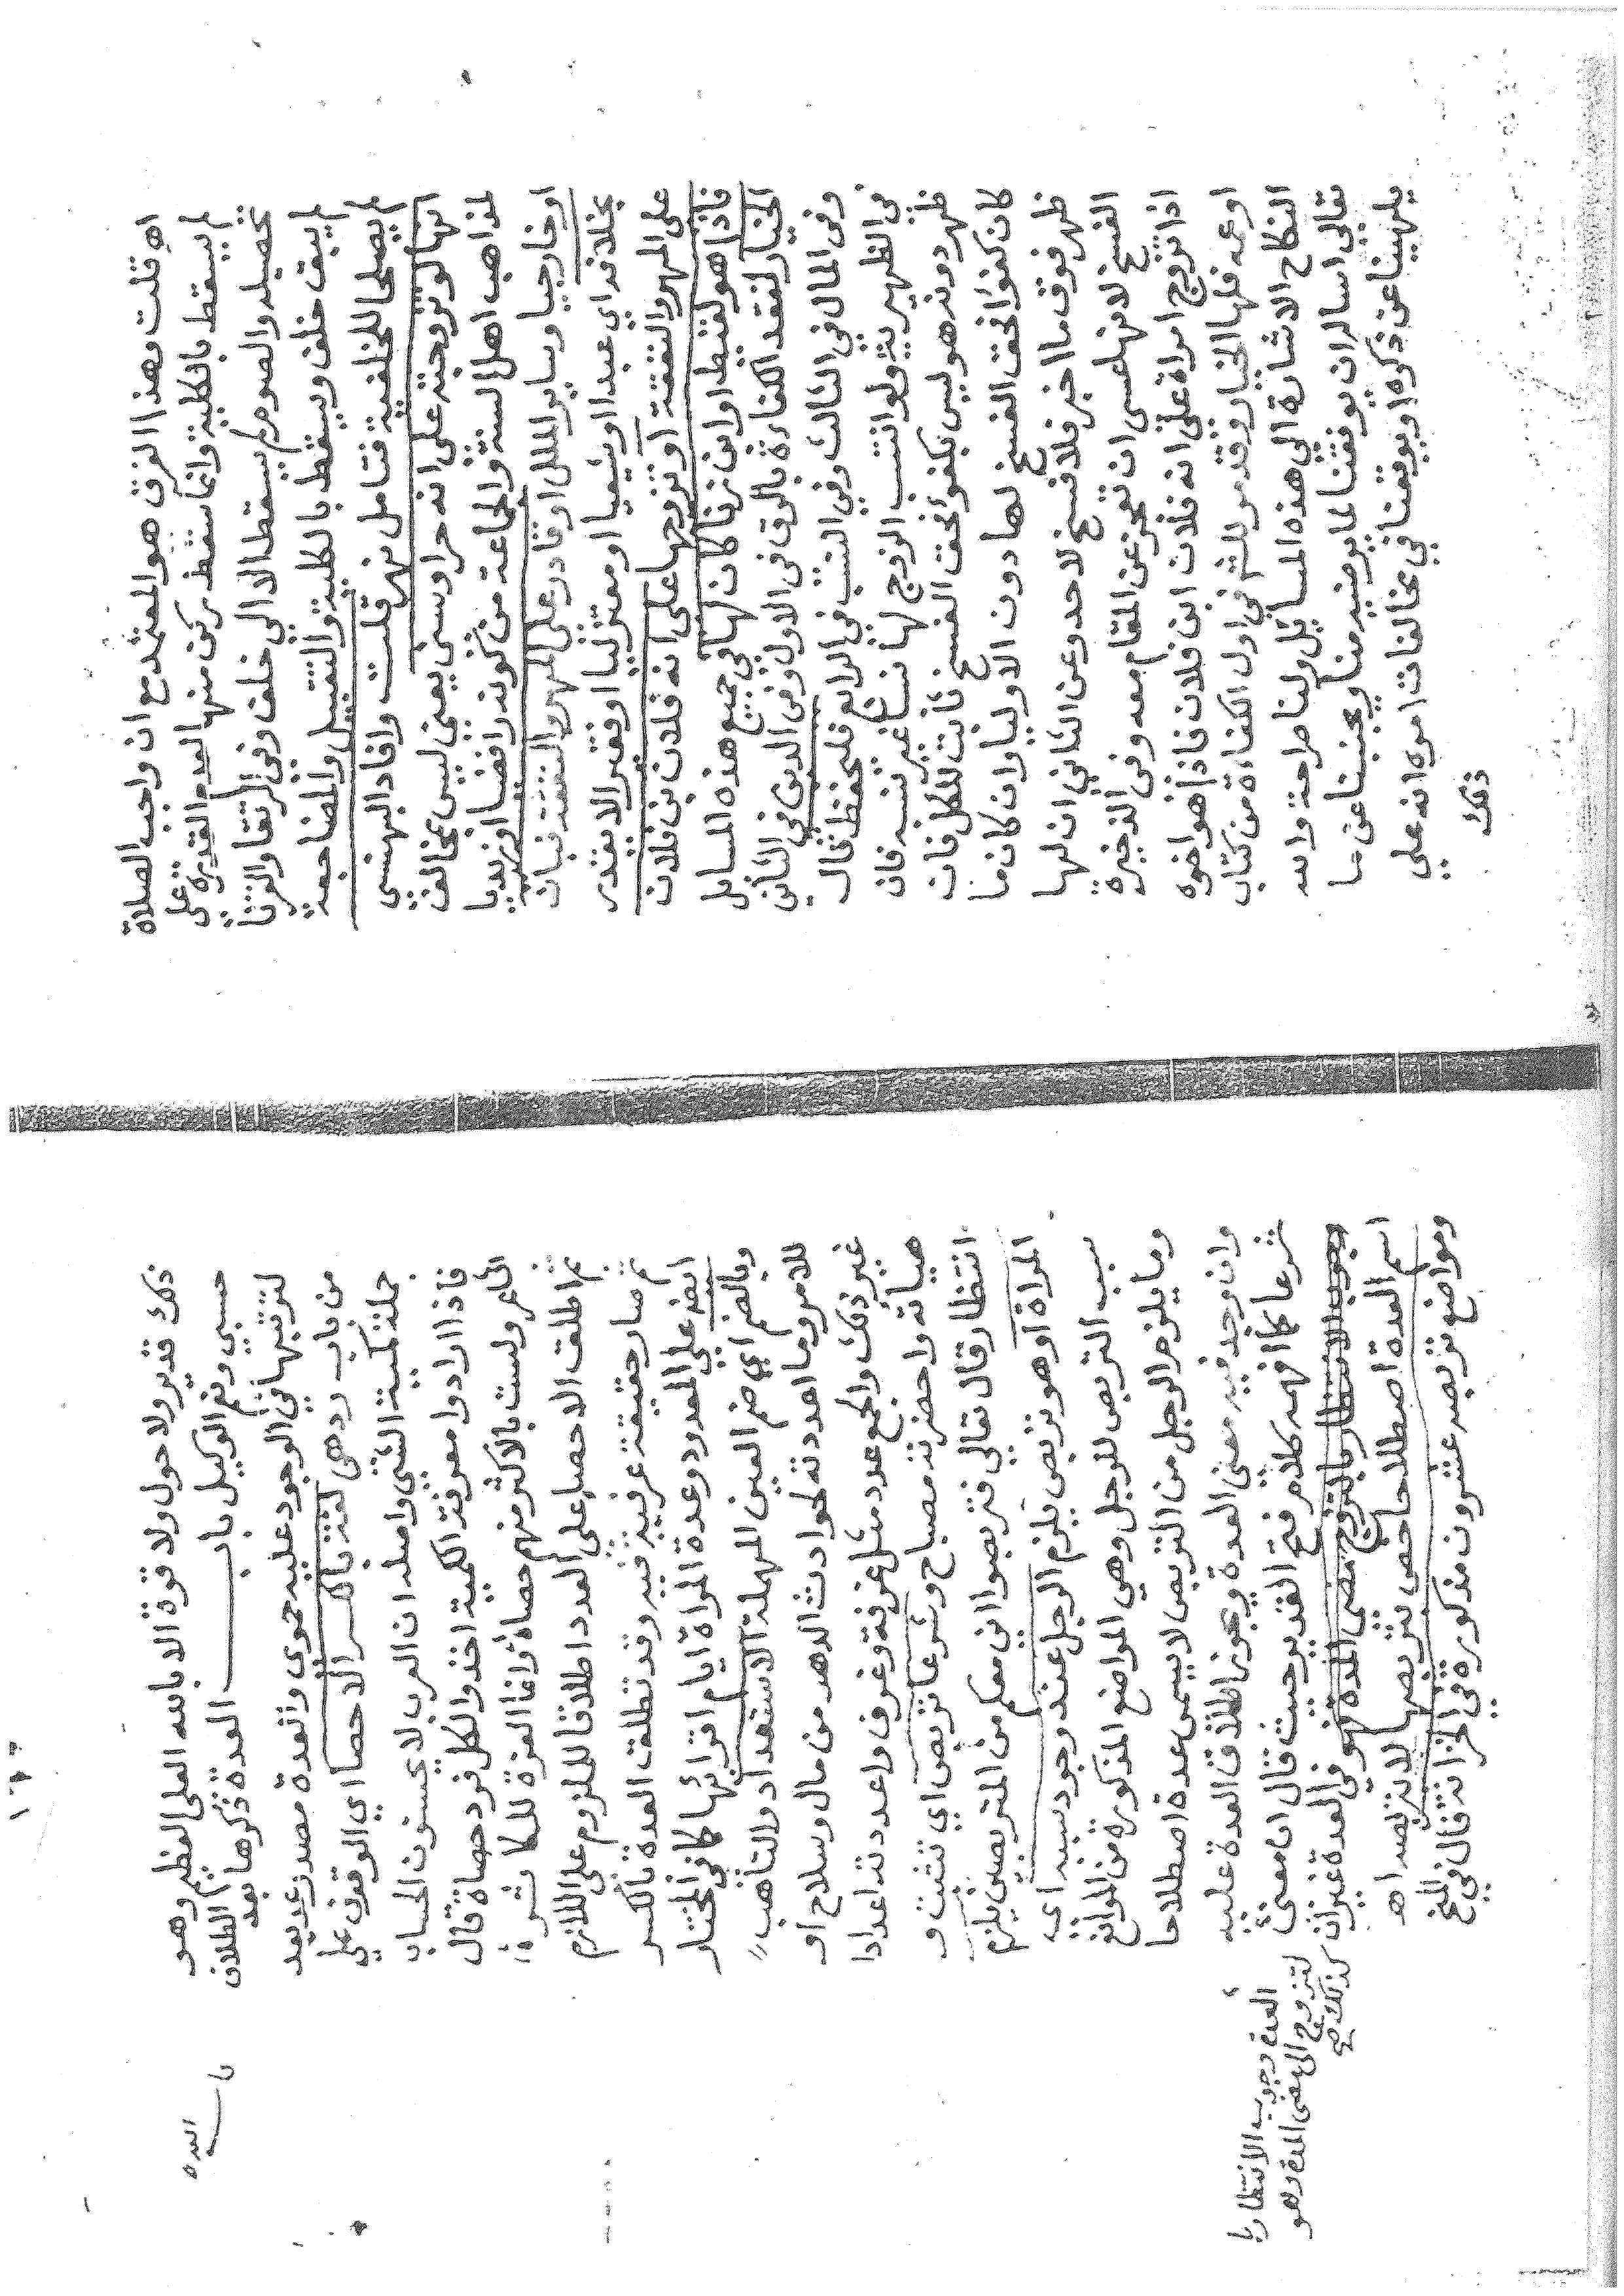 اه قلت وهذا الفرق هو المعتمد مع ان واجب الصلاة
لم يسقط بالكلية وانما سقط ركن منها لعدم القدرة على
تحصيله والصوم لم يسقط الا الى خلف وفى الرتقا والقرنا
لم يبق خلف ويسقط بالكلية والتقبيل والمضاجعة
لم يصلحا للخلفية فتامل نهر قلت وافاد البهنسى
انها لو تزوجته على انه حر او سنى يعنى ليس بمخالف
لمذاهب اهل السنة والجماعة من كونه رافضيا او زيديا
او خارجيا وساير الملل او قادر على المهر والنفقة فبان
بخلافه اي عبدا او شيعيا او معتزليا او فقيرا لا يقدر
على المهر والنفقة او تزوجها على انه فلان بن فلان
فاذا هو لقيط او ابن زنا كان لها في جميع هذه المسايل
الخيار لفقد الكفاءة بالرق فى الاول وفى الدين في الثانى
وفى المال فى الثالث وفي النسب فى الرابع فليحفظ قال
فى الظهيرية ولو انتسب الزوج لها نسبا غير نسبه فان
ظهر دونه وهو ليس بكفوء فحق الفسخ ثابت للكل فان
كان كفوا فحق الفسخ لها دون الاوليا وان كان ما
ظهر فوق ما اخبر فلا فسخ لاحد وعن الثاني ان لها
الفسخ لانها عسى ان تعجز عن المقام معه وفى الذخيرة
اذا تزوج امراة على انه فلان ابن فلان فاذا هو اخوه
او عمه فلها الخيار وقد مر للشم في اول الكفاءة من كتاب
النكاح الاشارة الى هذه المسائل ولنا صراحة والله
تعالى اسال ان يوفقنا لما يرضيه منا ويجنبنا عن ما
يلهينا عن ذكره او يوقعنا في مخالفات امره انه على
ذلك
ذلك قدير ولا حول ولا قوة الا بالله العلى العظيم وهو
حسبي ونعم الوكيل باب العدة ذكرها بعد الطلاق
لترتبها في الوجود عليه حموى والعدة مصدر عد يعد
من باب رد هى لغة بالكسر الاحصا اي الوقوف على
جملة كمية الشئ واصله ان العرب لا يحسنون الحساب
فاذا ارادوا معرفة الكمية اخذوا لكل فرد حصاة قال
الشاعر ولست بالاكثر منهم حصاة وانما العزة للكاثر
ثم اطلق الاحصا على العد اطلاقا للملزوم على اللازم
ثم صار حقيقة عرفية فيه وقد تطلق العدة بالكسر
ايضا على المعدود وعدة المراة ايام اقرائها كما في المختار
وبالضم اي ضم العين المهملة الاستعداد والتأهب
للامور وما اعددته لحوادث الدهر من مال وسلاح او
غير ذلك والجمع عدد مثل غرفة وغرف واعددته اعدادا
هيأته واحضرته مصباح وشرعا تربص اي تثبت و
انتظار قال تعالى فتربصوا انى معكم من المتربصين يلزم
المراة او هو تربص يلزم الرجل عند وجود سببه اى
سبب التربص للرجل وهي المواضع المذكورة من الموانع
وما يلزم الرجل من التربص لا يسمى عدة اصطلاحا
وان وجد فيه معنى العدة ويجوز اطلاق العدة عليه
شرعا كما افهمه كلام فتح القدير حيث قال اما معنى
العدة وجوب الانتظار با
لتزوج الى مضى المدة وهو
كذلك صح
وجوب الانتظار بالتزوج مضى المدة فهو فى العدة غير ان
اسم العدة اصطلاحا خص بتربصها لا بتربصه اهـ
ومواضع تربصه عشرون مذكورة في الخزانة قال في المنح
باب العدة